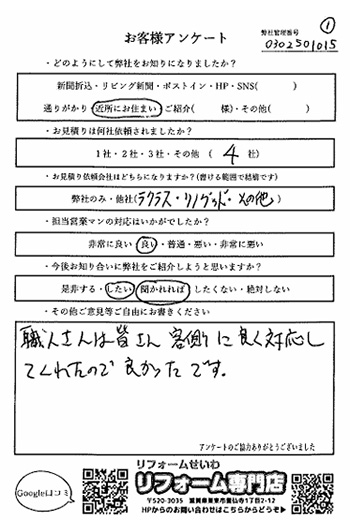 ①
お客様アンケート
弊社管理番号
0302501015
・どのようにして弊社をお知りになりましたか？
新聞折込・リビング新聞・ポストイン・HP・SNS( )
通りがかり・近所にお住まい・ご紹介( 様)・その他( )
・お見積りは何社依頼されましたか？
1社・2社・3社・その他 ( 4 社)
・お見積り依頼会社はどちらになりますか？(書ける範囲で結構です)
弊社のみ・他社(ラクラス・リノグッド・その他)
・担当営業マンの対応はいかがでしたか？
非常に良い・良い・普通・悪い・非常に悪い
・今後お知り合いに弊社をご紹介しようと思いますか？
是非する・したい・聞かれれば・したくない・絶対しない
・その他ご意見等ご自由にお書きください
職人さんは皆さん 客側に良く対応し
てくれたので 良かったです。
アンケートのご協力ありがとうございました
Google口コミ
リフォームせいわ
リフォーム専門店
〒520-3035 滋賀県栗東市霊仙寺1丁目2-12
HPからのお問い合わせはこちらからどうぞ▶